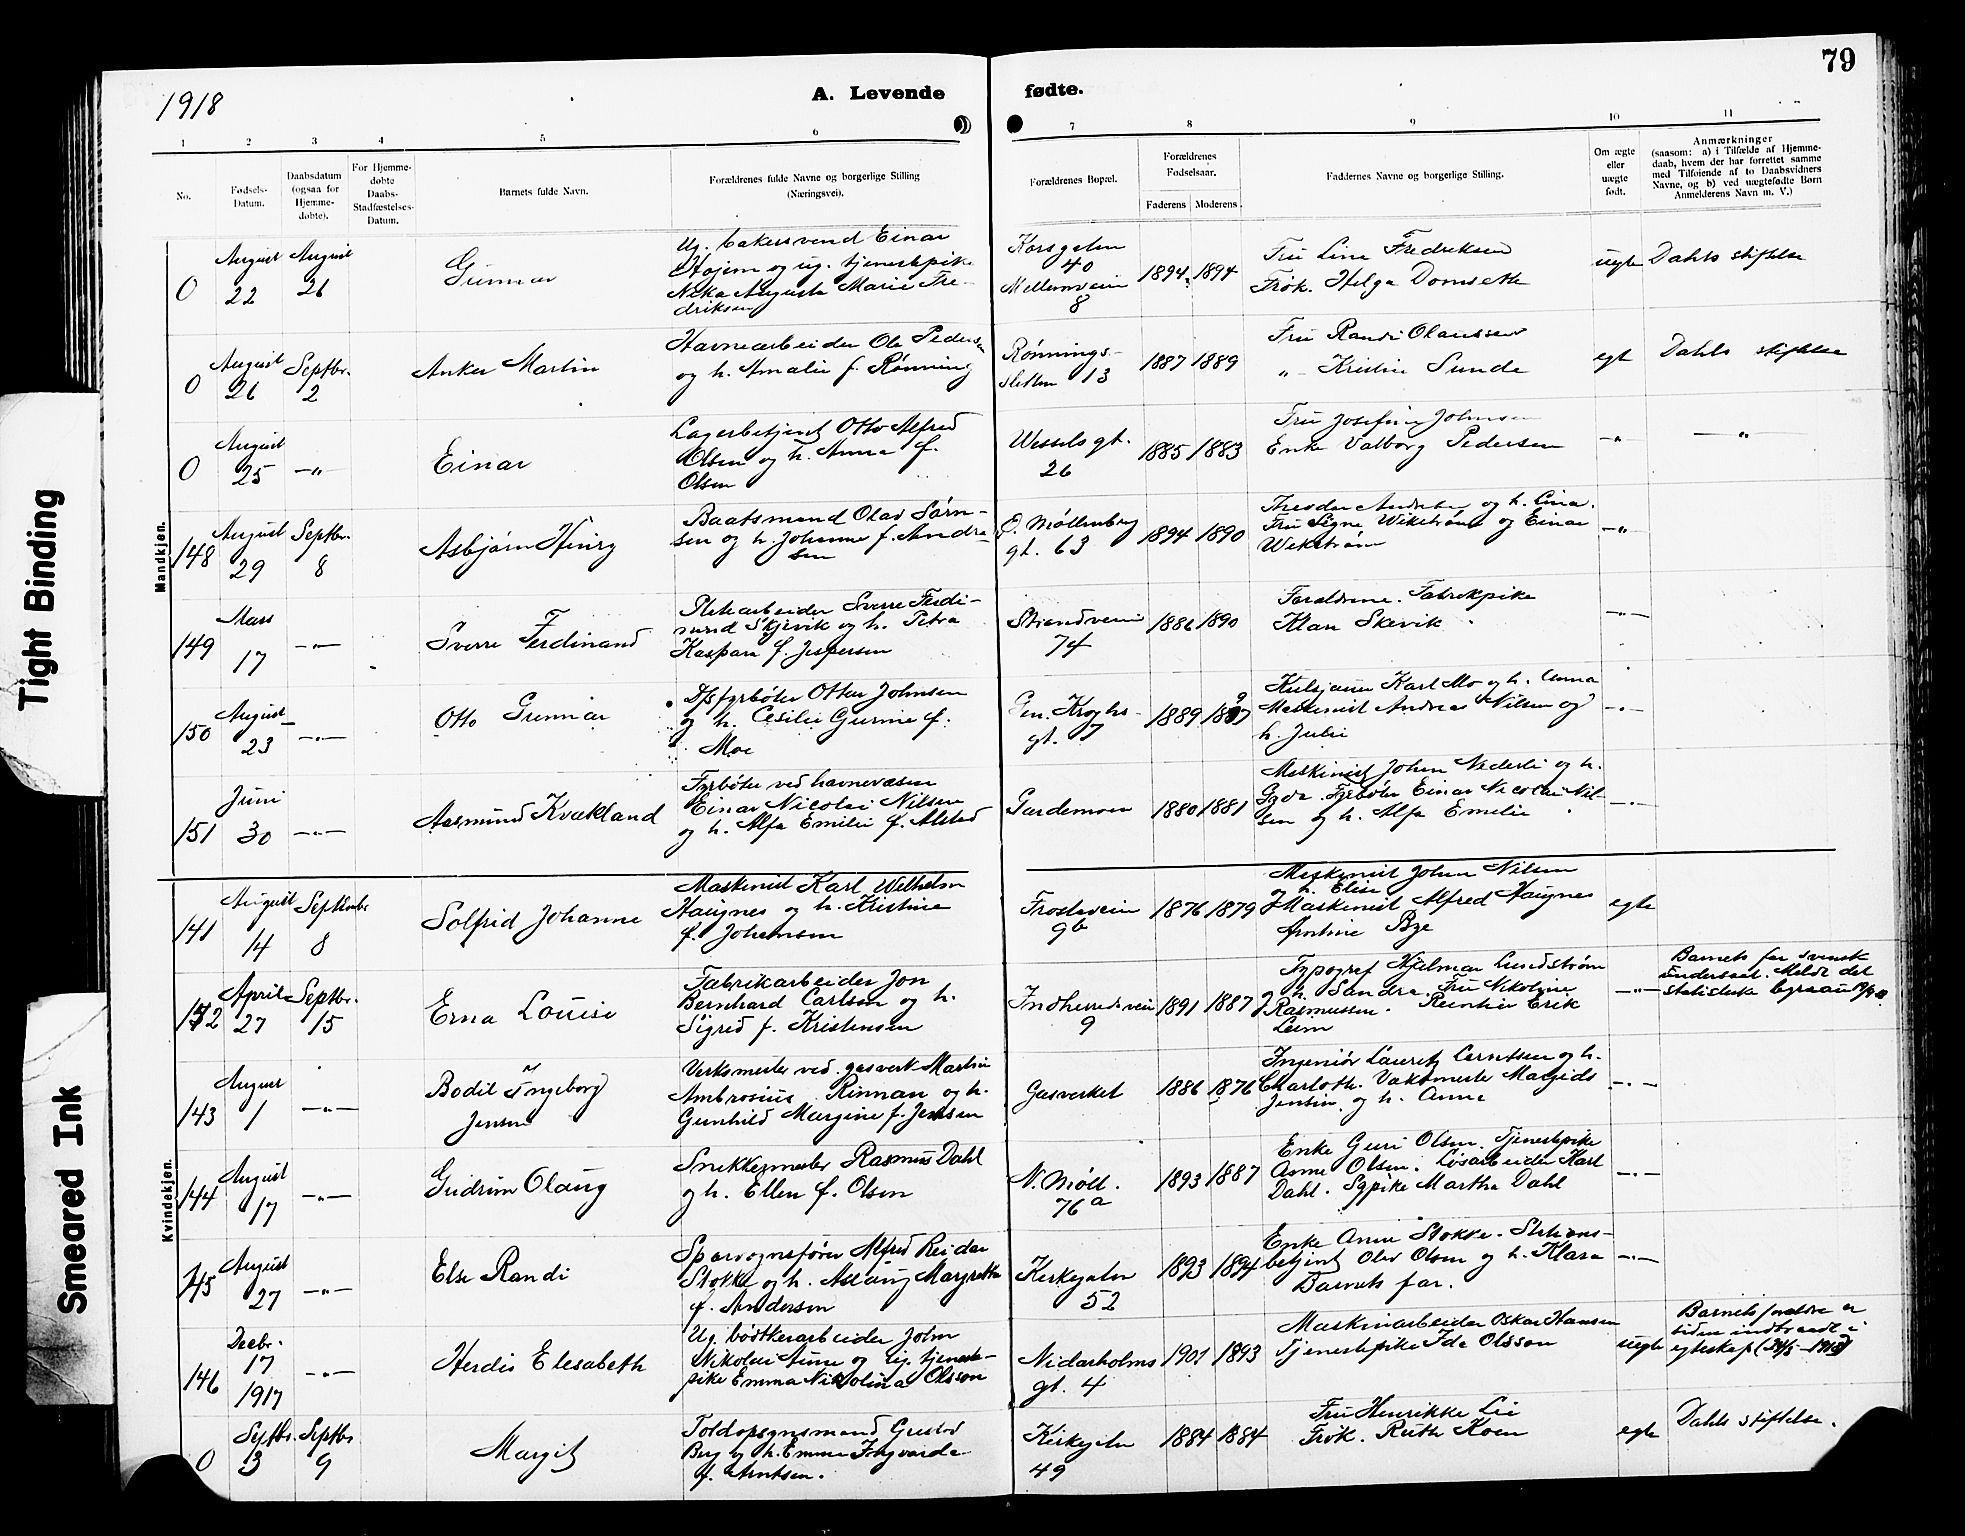 79
1918
A. Levende fødte.
1 2 3 4 5 6 7 8 9 10 11
No.
Fødsels-
Datum.
Daabsdatum
(ogsaa for
Hjemme-
døbte).
For Hjemme-
døbte
Daabs-
Stadfæstelses-
Datum.
Barnets fulde Navn.
Forældrenes fulde Navne og borgerlige Stilling
(Næringsvei).
Forældrenes Bopæl.
Forældrenes
Fødselsaar.
Faderens Moderens.
Faddernes Navne og borgerlige Stilling.
Om ægte
eller
uægte
født.
Anmærkninger
(saasom: a) i Tilfælde af Hjemme-
daab, hvem der har forrettet samme
med Tilføiende af to Daabsvidners
Navne, og b) ved uægtefødte Børn
Anmelderens Navn m. V.)
Mandkjøn.
0
August
22
August
26
Gunnar
Ug. bakersvend Einar
Hojem og ug. tjenestepike
Nika Augusta Marie Fre-
driksen
40
Mellemveien
8
1894 1894
Fru Line Fredriksen
Frøk. Helga Domseth
uegte
Dahls stiftelse
0
August
26
Septbr.
2
Anker Martin
Havnearbeider Ole Pedersen
og h. Amalie f. Rønning
Rønnings-
sletten 13
1887 1889
Fru Randi Olaussen
„ Kristine Sunde
egt
Dahls stiftelse
0
August
25
—„—
Einar
Lagerbetjent Otto Alfred
Olsen og h. Anna f.
Olsen
Wessels gt.
26
1885 1883
Fru Josefine Johnsen
Enke Valborg Pedersen
—„—
—„—
148
August
29
Septbr.
8
Asbjørn Henry
Baatsmand Olav Sørn-
sen og h. Johanne f. Andre-
sen
Ø. Møllenberg
gt. 63
1894 1890
Theodor Andresen og h. Lina.
Fru Signe Wikstrøm og Einar
Wikstrøm
—„—
149
Mars
17
—„—
Sverre Ferdinand
Platearbeider Sverre Ferdi-
nand Skjevik og h. Petra
Kaspara f. Jespersen
Strandveien
74
1886 1890
Forældrene. Fabrikpike
Klara Skevik
—„—
150
August
23
—„—
Otto Gunnar
D/s fyrbøter Ottar Johnsen
og h. Cesilie Gurine f.
Moe
Gen. Kroghs-
gt. 7
1889 1897
Karl Mo og h. Anna
Maskinist Andreas Nilsen og
h. Julie
—„—
151
Juni
30
—„—
Aasmund Kvakland
Fyrbøter ved havnevæsen
Einar Nicolai Nilsen
og h. Alfa Emilie f. Alstad
Gardemoen
1880 1881
Maskinist Johan Nederli og h.
Gyda. Fyrbøter Einar Nicolai Nil-
sen og h. Alfa Emilie
—„—
Kvindekjøn.
141
August
14
Septembr
8
Solfrid Johanne
Maskinist Karl Wilhelm
Haugnes og h. Kristine
f. Johansen
Frostaveien
9b
1876 1879
Maskinist Johan Nilsen
h. Elise
Maskinist Alfred Haugnes
Bye
egte
142
April
27
Septbr.
15
Erna Louise
Fabrikarbeider Jon
Bernhard Carlsen og h.
Sigrid f. Kristensen
Indherredsveien
9
1891 1887
Typograf Hjelmar Lundstrøm
h. Sandra. Fru Nikoline
Rasmussen. Erik
Leim
—„—
Barnets far svensk
undersaat. Meldt det
statistiske byraa
143
August
1
—„—
Bodil Ingeborg
Jensen
Verksmester ved gasverk Martin
Ambrosius Rinnan og h.
Gunhild Margine f. Jensen
Gasverket
1886 1876
Ingeniør Lauretz Berntsen og h.
Charloth. Vaktmester Margids
Jensin og h. Anna
—„—
144
August
17
—„—
Gudrun Olaug
Snekkermester Rasmus Dahl
og h. Ellen f. Olsen
N. Møll.
76a
1893 1887
Enke Guri Olsen. Tjenestepike
Anne Olsen. Løsarbeider Karl
Dahl. Sypike Martha Dahl
—„—
145
August
27
—„—
Else Randi
Sporvognsfører Alfred Reidar
Stokke og h. Aslaug Margrethe
f. Andersen
Kirkegaten
52
1893 1894
Enke Anne Stokke. Stations-
betjent Olav Olsen og h. Klara
Barnets far.
—„—
146
Decbr.
17
1917
—„—
Herdis Elesabeth
Ug. bødkerarbeider John
Nikolai Aune og ug. tjeneste-
pike Emma Nikolina Olsson
Nidarholms
gt. 4
1901 1893
Maskinarbeider Oskar Hansen
Tjenestepike Ida Olsson
uegte
Barnets foreldre er
siden indtraadt i
egteskap (24/5-1918)
0
Septbr.
3
Septbr
9
Margit
Toldopsynsmand Gustav
Berg og h. Emma Ingvarda
f. Arntsen.
Kirkegaten
49
1884 1884
Fru Henrikke Lie
Frøk. Ruth Koen
egte
Dahls stiftelse.
Tight Binding
Smeared Ink